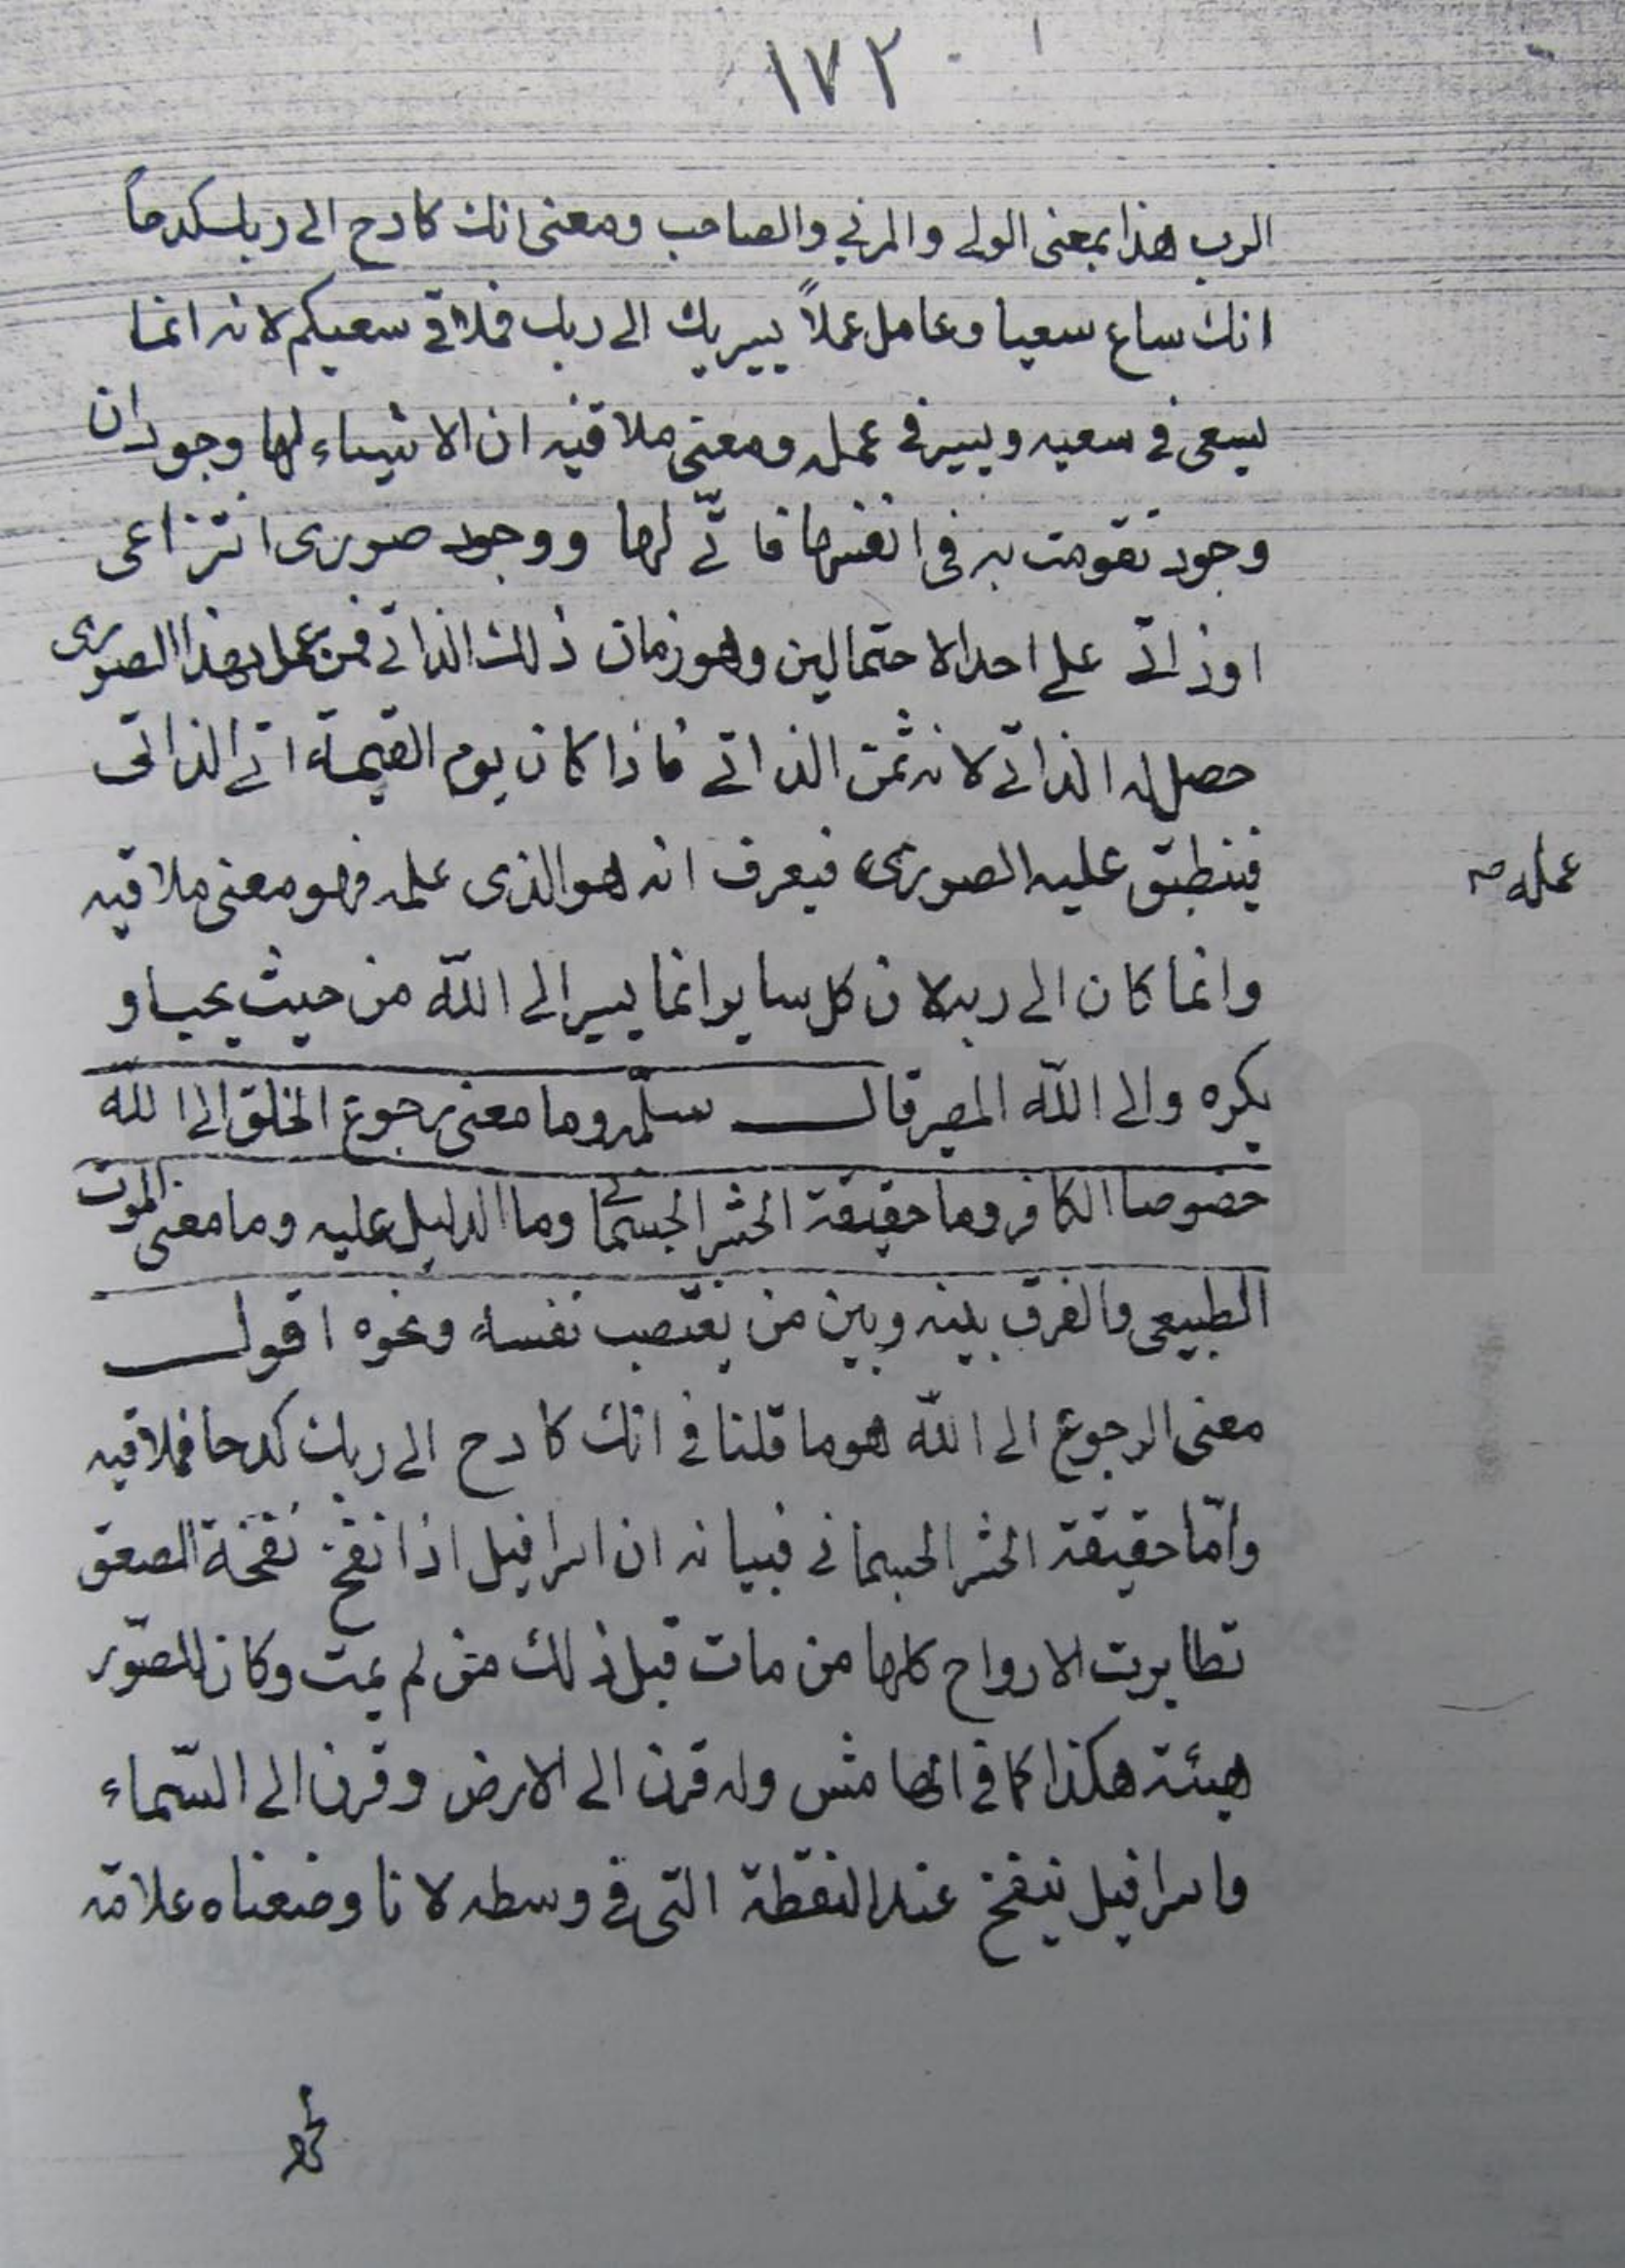 ١٧٢
الرب هذا بمعنى الولي والمربي والصاحب ومعنى انك كادح الى ربك كدحاً
انك ساع سعيا وعامل عملاً يسير بك الى ربك فملاقي سعيكم لانه انما
يسعى في سعيه ويسير في عمله ومعنى ملاقيه ان الاشياء لها وجودان
وجود تقومت به في انفسها ذاتّي لها ووجود صوري انتزاعي
او ذاتي على احد الاحتمالين وهو زمان ذلك الذاتي فمن عمل بهذا الصوري
حصل له الذاتي لانه ثمن الذاتي فاذا كان يوم القيمة اتى الذاتي
فينطبق عليه الصوري فيعرف انه هو الذي عمله فهو معنى ملاقيه
عمله صه
وانما كان الى ربه لان كل ساير انما يسير الى اللّه من حيث يحب او
يكره والى اللّه المصير قال سلّمه وما معنى رجوع الخلق الى اللّه
خصوصا الكافر وما حقيقة الحشر الجسماني وما الدليل عليه وما معنى الموت
الطبيعي والفرق بينه وبين من يغتصب نفسه ونحوه اقول
معنى الرجوع الى اللّه هو ما قلنا في انك كادح الى ربك كدحا فملاقيه
وامّا حقيقة الحشر الجسماني فبيانه ان اسرافيل اذا نفخ نفخة الصعق
تطايرت الارواح كلها من مات قبل ذلك ومن لم يمت وكان للصّور
هيئة هكذا كما في الهامش وله قرن الى الارض وقرن الى السّماء
واسرافيل ينفخ عند النقطة التي في وسطه لانا وضعناه علامة